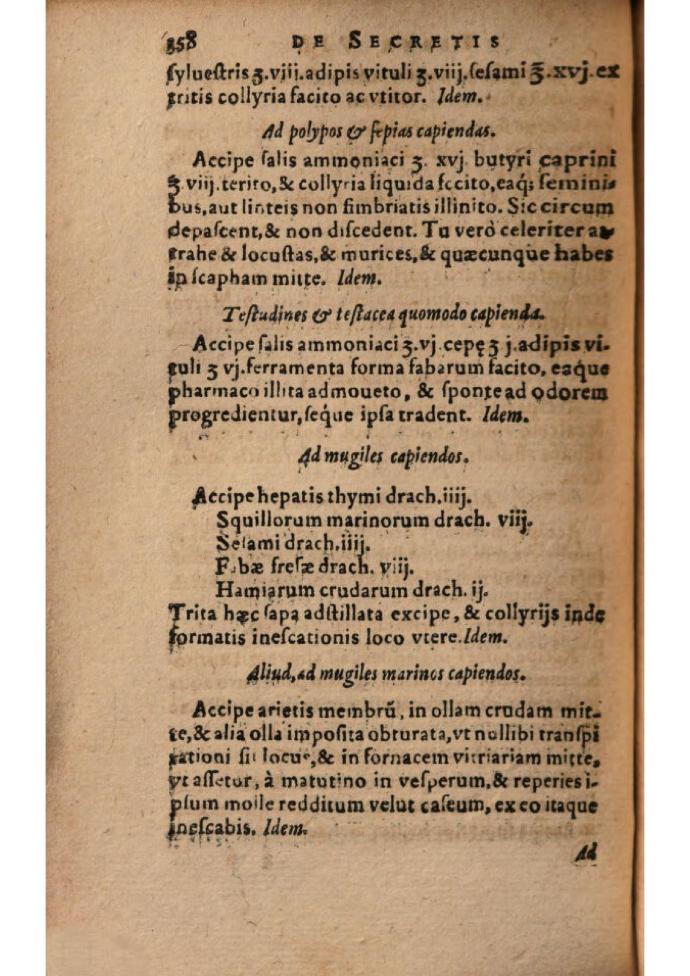 358 DE SECRETIS
ſylueſtris ʒ.viij.adipis vituli ʒ.viij.ſeſami ℥.xvj.ex
tritis collyria facito ac vtitor. Idem.
Ad polypos & ſepias capiendas.
Accipe ſalis ammoniaci ʒ. xvj. butyri caprini
ʒ.viij.terito,& collyria liquida fccito,eaq; ſemini-
bus,aut linteis non fimbriatis illinito. Sic circum
depaſcent,& non diſcedent. Tu verò celeriter at
trahe & locuſtas,& murices,& quæcunque habes
in ſcapham mitte. Idem.
Teſtudines & teſtacea quomodo capienda.
Accipe ſalis ammoniaci ʒ.vj.cepę ʒ j.adipis vi-
tuli ʒ vj.ferramenta forma fabarum facito, eaque
pharmaco illita admoueto, & ſponte ad odorem
progredientur,ſeque ipſa tradent. Idem.
Ad mugiles capiendos.
Accipe hepatis thymi drach.iiij.
Squillorum marinorum drach. viij.
Seſami drach.iiij.
Fabæ freſæ drach. viij.
Hamiarum crudarum drach. ij.
Trita hæc ſapa adſtillata excipe, & collyrijs inde
formatis ineſcationis loco vtere.Idem.
Aliud,ad mugiles marinos capiendos.
Accipe arietis membrũ, in ollam crudam mit-
te,& alia olla impoſita obturata,vt nullibi tranſpi
rationi ſit locus,& in fornacem vitriariam mitte,
vt aſſetur, à matutino in veſperum,& reperies i-
pſum molle redditum velut caſeum, ex eo itaque
ineſcabis. Idem.
Ad